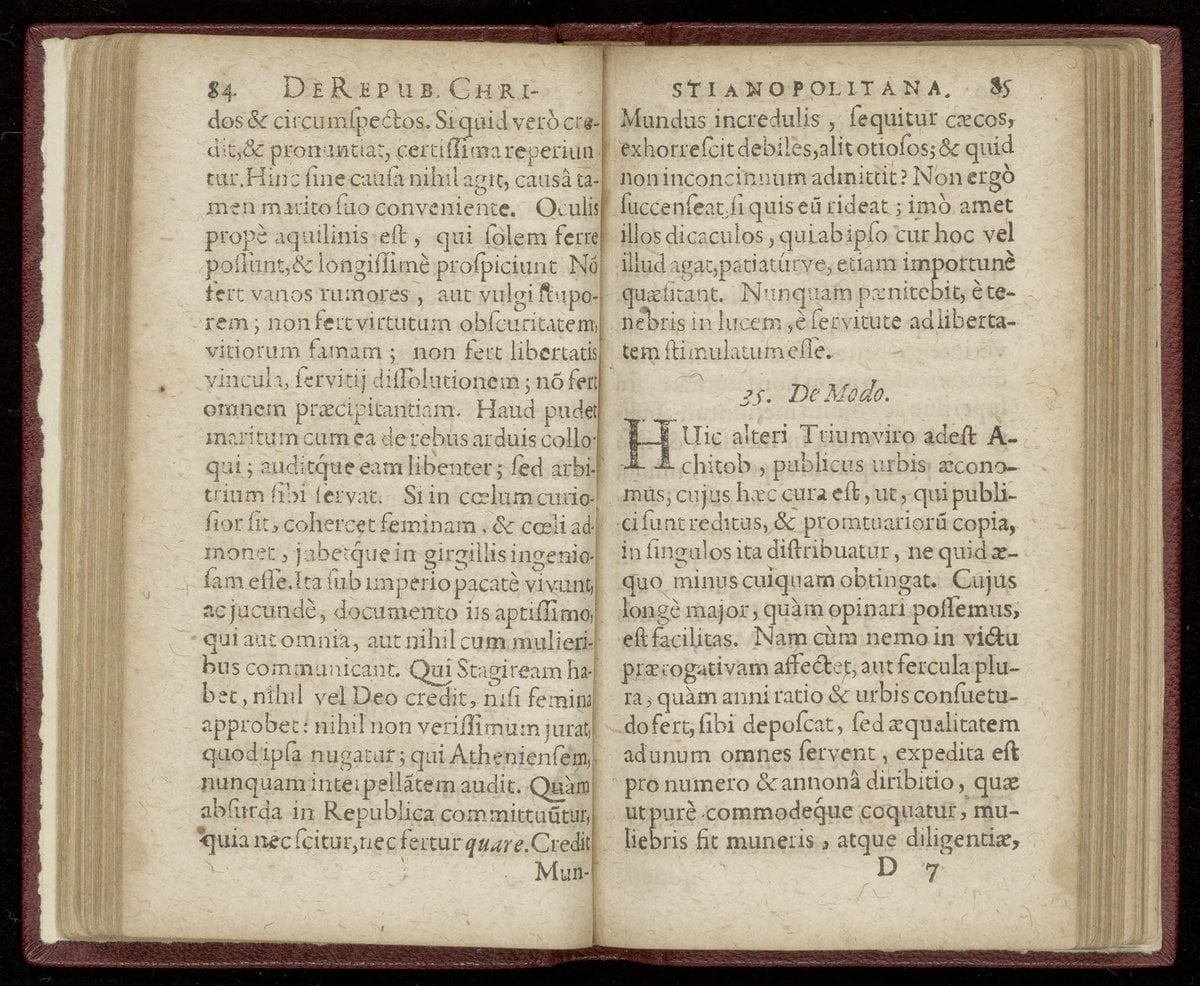 84. DE REPUB. CHRI-
dos & circumſpectos. Si quid verò cre-
dit, & pronuntiat, certiſſima reperiun
tur. Hinc ſine cauſa nihil agit, causâ ta-
men marito ſuo conveniente. Oculis
propè aquilinis eſt, qui ſolem ferre
poſſunt, & longiſſimè proſpiciunt Nõ
fert vanos rumores, aut vulgi ſtupo-
rem; non fert virtutum obſcuritatem,
vitiorum famam; non fert libertatis
vincula, ſervitij diſſolutionem; nõ fert
omnem præcipitantiam. Haud pudet
maritum cum ea de rebus arduis collo-
qui; auditq́ue eam libenter; ſed arbi-
trium ſibi ſervat. Si in cœlum curio-
ſior ſit, cohercet feminam, & cœli ad-
monet, jubetq́ue in girgillis ingenio-
ſam eſſe. Ita ſub imperio pacatè vivunt,
ac jucundè, documento iis aptiſſimo,
qui aut omnia, aut nihil cum mulieri-
bus communicant. Qui Stagiream ha-
bet, nihil vel Deo credit, niſi femina
approbet: nihil non veriſſimum jurat,
quod ipſa nugatur; qui Athenienſem,
nunquam interpellãtem audit. Quàm
abſurda in Republica committuũtur,
quia nec ſcitur, nec fertur quare. Credit
Mun-
STIANOPOLITANA. 85
Mundus incredulis, ſequitur cæcos,
exhorreſcit debiles, alit otioſos; & quid
non inconcinnum admittit? Non ergò
ſuccenſeat, ſi quis eũ rideat; imò amet
illos dicaculos, qui ab ipſo cur hoc vel
illud agat, patiatúrve, etiam importunè
quæſitant. Nunquam pœnitebit, è te-
nebris in lucem, è ſervitute ad liberta-
tem ſtimulatum eſſe.
35. De Modo.
HUic alteri Triumviro adeſt A-
chitob, publicus urbis œcono-
mus, cujus hæc cura eſt, ut, qui publi-
ci ſunt reditus, & promtuariorũ copia,
in ſingulos ita diſtribuatur, ne quid æ-
quo minus cuiquam obtingat. Cujus
longè major, quàm opinari poſſemus,
eſt facilitas. Nam cùm nemo in victu
prærogativam affectet, aut fercula plu-
ra, quàm anni ratio & urbis conſuetu-
do fert, ſibi depoſcat, ſed æqualitatem
ad unum omnes ſervent, expedita eſt
pro numero & annonâ diribitio, quæ
ut purè commodeq́ue coquatur, mu-
liebris fit muneris, atque diligentiæ,
D 7